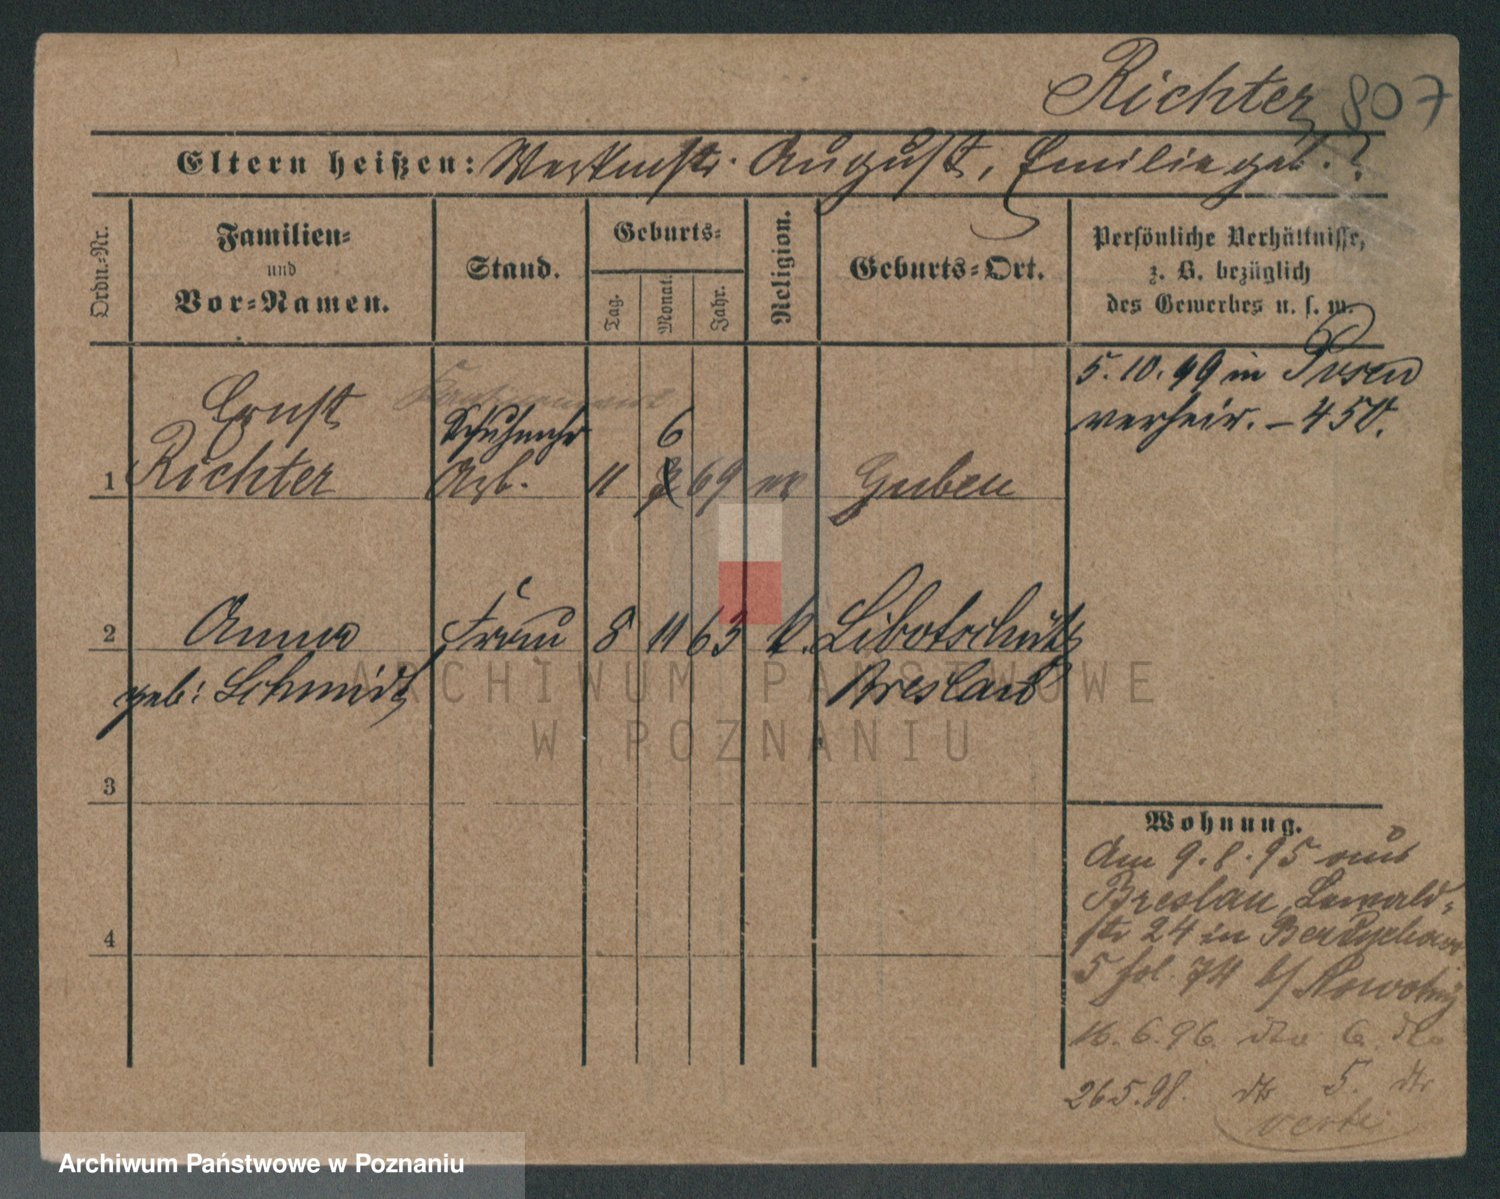 Richter 807
Eltern heißen: Werkmstr. August, Emilie geb. ?
Ordn.-Nr.
Familien-
und
Vor-Namen.
Stand.
Geburts-
Tag.
Monat.
Jahr.
Religion.
Geburts-Ort.
Persönliche Verhältnisse,
z. B. bezüglich
des Gewerbes u. s. w.
5.10.99 in Posen
verheir. – 450.
Ernst
Schuhmchr 6
1 Richter Arb. 11 69 ev Guben
2 Anna Frau 8 11 63 k. Libotschütz
geb: Schmidt Breslau
3
4
Wohnung.
Am 9.8.95 aus
Breslau, Lewald-
str 24 in Berdychowo
5 fol. 74 b/ Nowotny
16.6.96. dto 6. dto
26.5.98. dto 5. dto
verte
ARCHIWUM PAŃSTWOWE
W POZNANIU
Archiwum Państwowe w Poznaniu